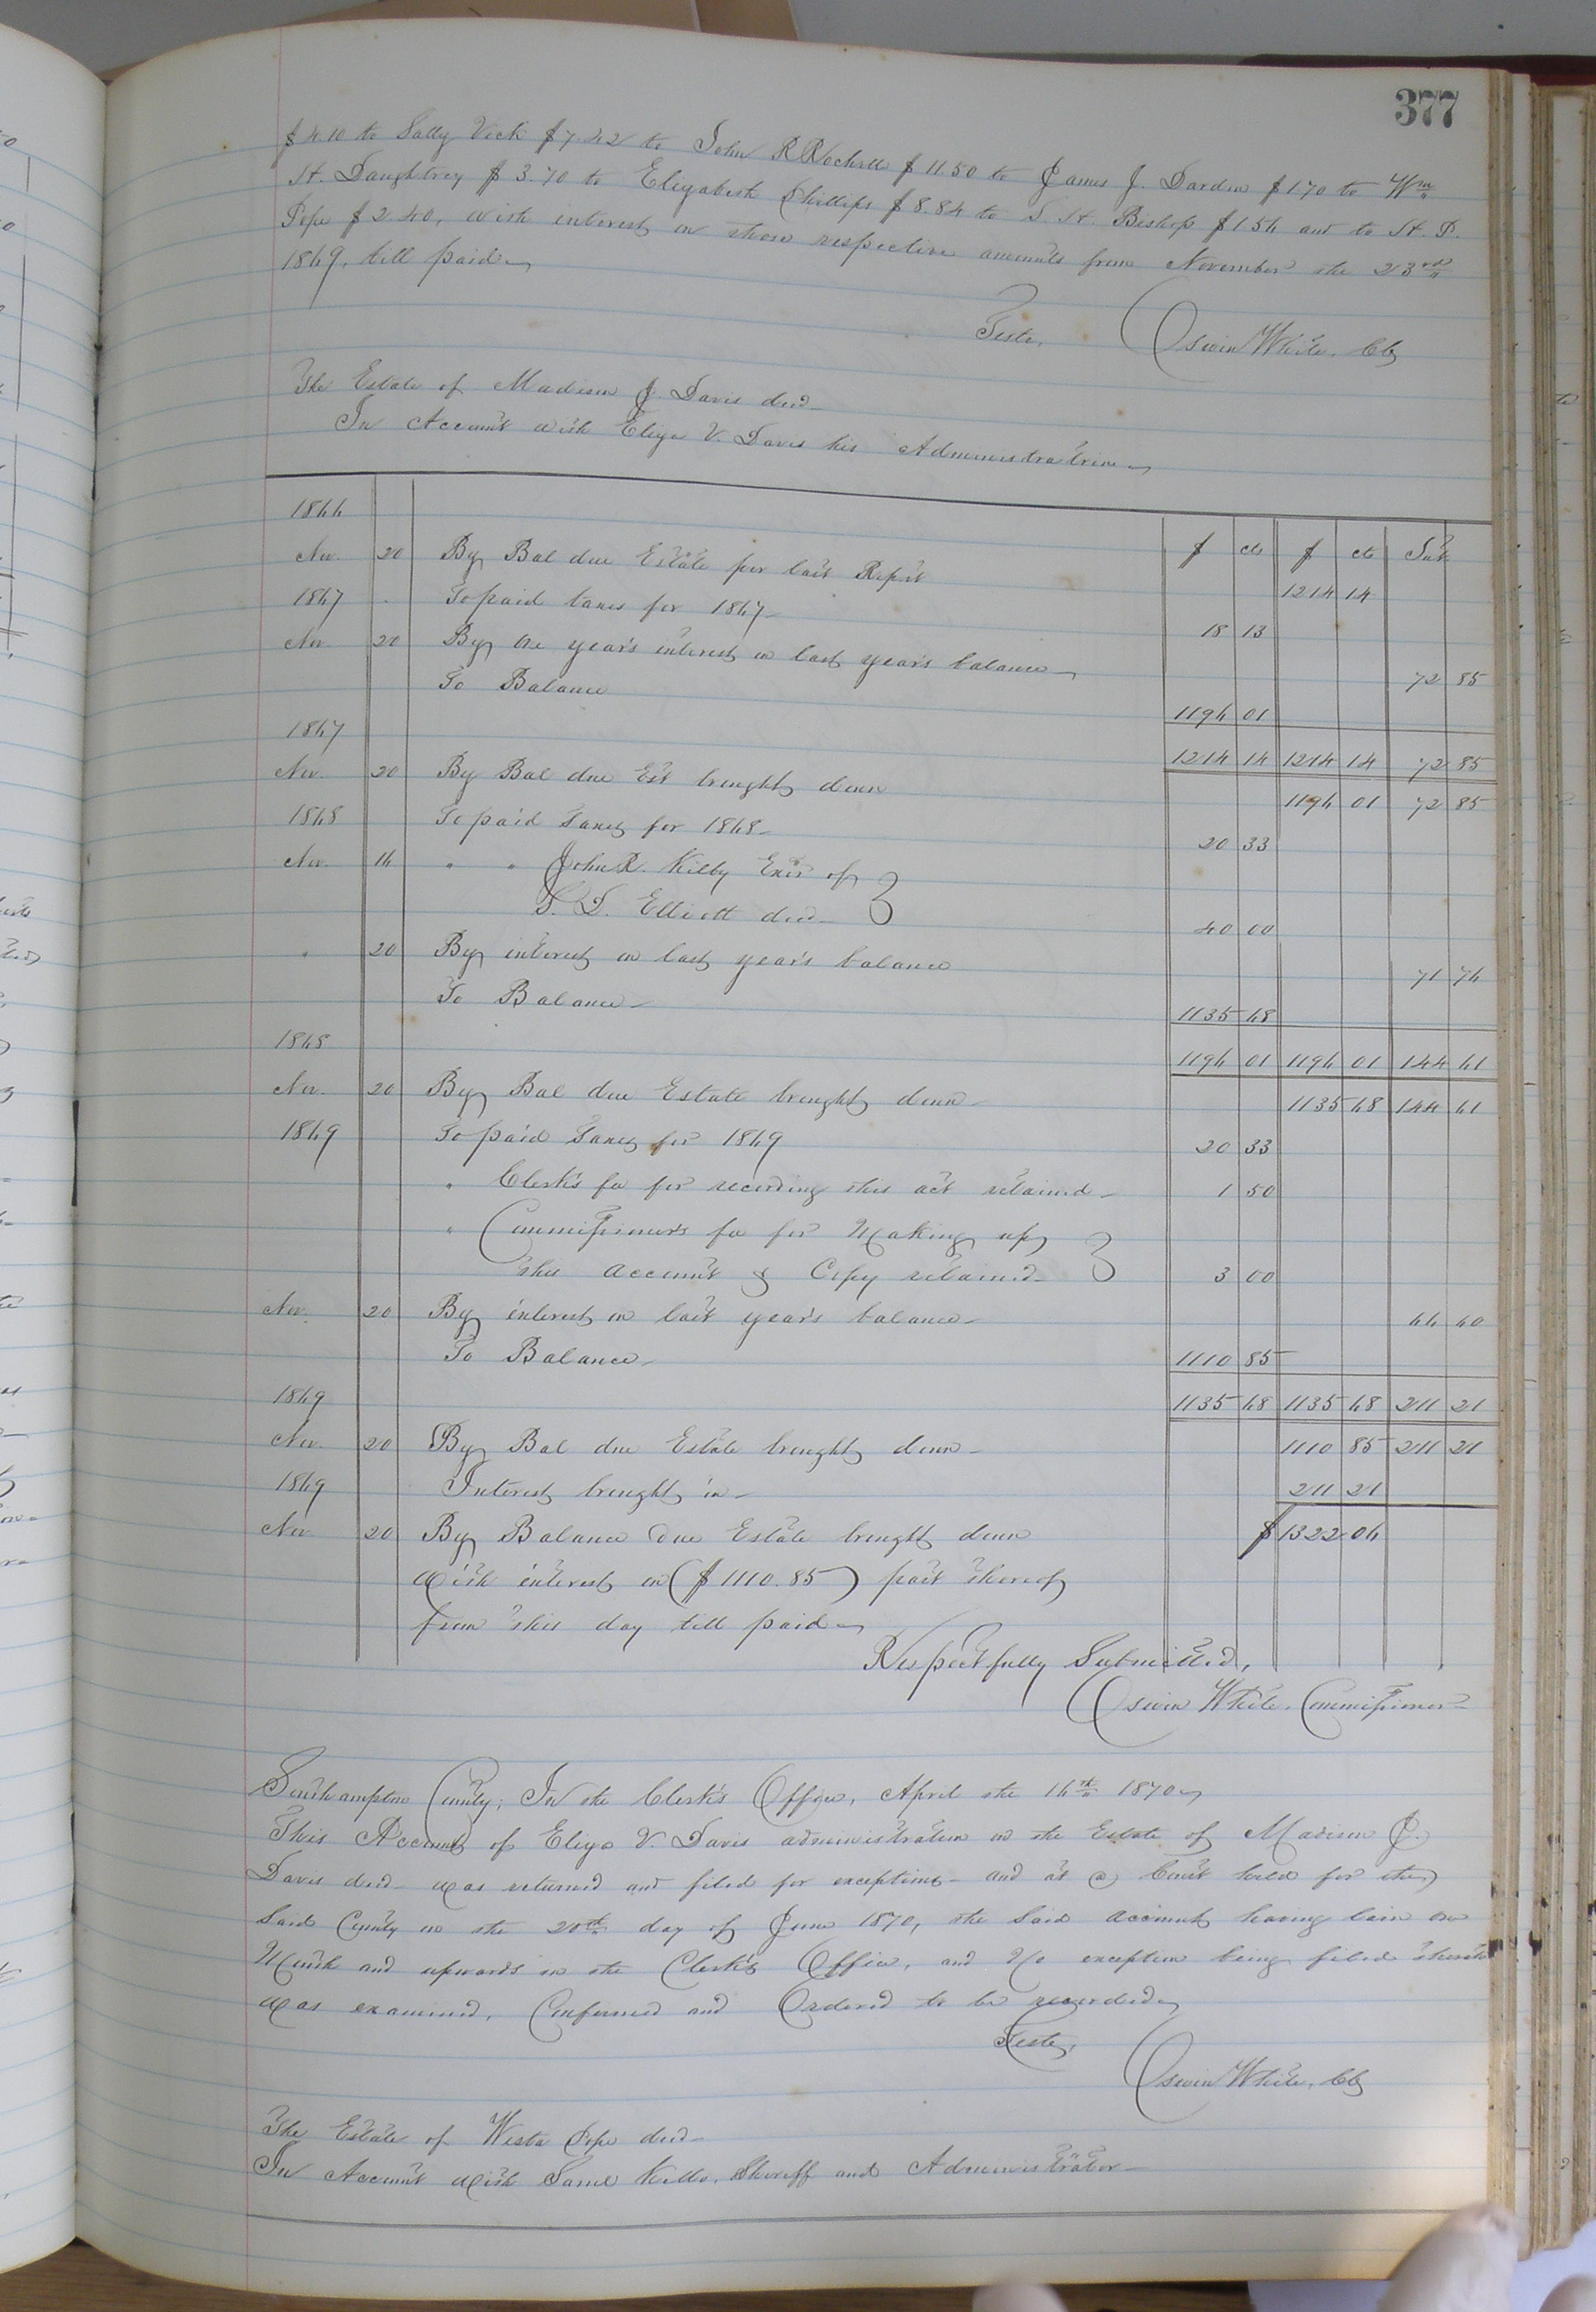 377
$4.10 to Sally Vick $7.42 to John R Rochelle $11.50 to James J. Darden $1.70 to Wm
H. Daughtrey $3.70 to Elizabeth Phillips $8.84 to S. H. Bishop $1.56 and to H. P.
Pope $2.40, with interest on those respective amounts from November the 23rd
1869, till paid
Teste, Oswin White, Clk
The Estate of Madison J. Davis decd
In Account with Eliza V. Davis his Administratrix
1866 $ cts $ cts Int
Nov. 20 By Bal due Estate per last Report 1214 14
1867 To paid taxes for 1867 18 13
Nov. 20 By one year's interest on last year's balance 72 85
To Balance 1196 01
1867 1214 14 1214 14 72 85
Nov. 20 By Bal due Est brought down 1196 01 72 85
1868 To paid Taxes for 1868 20 33
Nov. 16 " " John R. Kilby Exor of
T. D. Elliott decd 40 00
" 20 By interest on last year's balance 71 76
To Balance 1135 68
1868 1196 01 1196 01 144 61
Nov. 20 By Bal due Estate brought down 1135 68 144 61
1869 To paid Taxes for 1869 20 33
" Clerk's fee for recording this act retained 1 50
" Commissioner's fee for Making up
this account & Copy retained 3 00
Nov. 20 By interest on last year's balance 66 60
To Balance 1110 85
1869 1135 68 1135 68 211 21
Nov. 20 By Bal due Estate brought down 1110 85 211 21
1869 Interest brought in 211 21
Nov 20 By Balance due Estate brought down $1322 06
with interest on ($1110.85) part thereof
from this day till paid
Respectfully Submitted,
Oswin White, Commissioner
Southampton County; In the Clerk's Office, April the 16th 1870
This Account of Eliza V. Davis administratrix on the Estate of Madison J.
Davis decd was returned and filed for exceptions and at a Court held for the
said County on the 20th day of June 1870, the said account having lain one
Month and upwards in the Clerk's Office, and No exception being filed thereto
was examined, Confirmed and Ordered to be recorded
Teste, Oswin White, Clk
The Estate of Pope decd
In Account with Saml Kello, Sheriff and Administrator